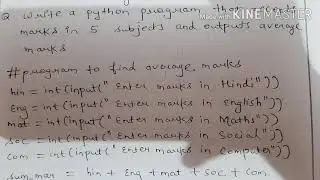 Made with KINEMASTER
Q. write a python program that
marks in 5 subjects and outputs average
marks
# program to find average marks
hin = int(input("Enter marks in Hindi"))
Eng = int(input("Enter marks in english"))
mat = int(input("Enter marks in Maths"))
soc = int(input("Enter marks in Social"))
com = int(input("Enter marks in Computer"))
sum_mar = hin + Eng + mat + soc + com